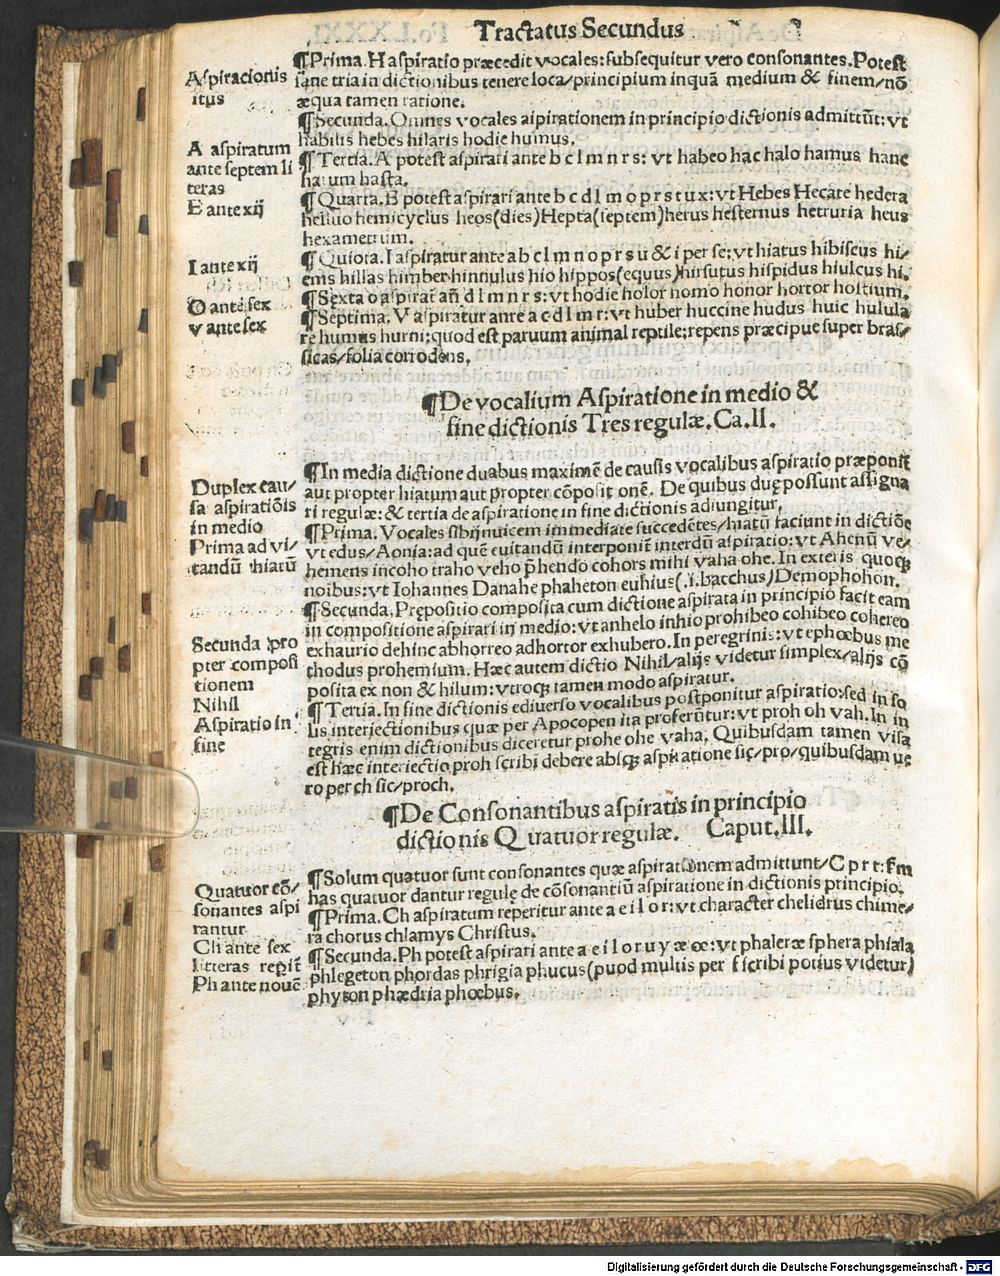 Tractatus Secundus
¶Prima. H aspiratio præcedit vocales: subsequitur vero consonantes. Potest
sane tria in dictionibus tenere loca/principium inquã medium & finem/nõ
æqua tamen ratione.
¶Secunda. Omnes vocales aspirationem in principio dictionis admittũt: vt
habilis hebes hilaris hodie humus.
¶Tertia. A potest aspirari ante b c l m n r s: vt habeo hac halo hamus hanc
harum hasta.
¶Quarta. E potest aspirari ante b c d l m o p r s t u x: vt Hebes Hecate hedera
helluo hemicyclus heos(dies)Hepta(septem)herus hesternus hetruria heus
hexametrum.
¶Quinta. I aspiratur ante a b c l m n o p r s u & i per se: vt hiatus hibiscus hi/
ems hillas himber hinnulus hio hippos(equus)hirsutus hispidus hiulcus hi.
¶Sexta o aspirat añ d l m n r s: vt hodie holor homo honor hortor hostium.
¶Septima. V aspiratur ante a c d l m r: vt huber huccine hudus huic hulula
re humus hurni: quod est paruum animal reptile: repens præcipue super bras/
sicas/folia corrodens.
Aspiracionis
itus
A aspiratum
ante septem li
teras
E ante xij
I ante xij
O ante sex
v ante sex
¶De vocalium Aspiratione in medio &
fine dictionis Tres regulæ. Ca. II.
¶In media dictione duabus maximẽ de causis vocalibus aspiratio præponit̃
aut propter hiatum aut propter cõposit onẽ. De quibus duę possunt assigna
ri regulæ: & tertia de aspiratione in fine dictionis adiungitur.
¶Prima. Vocales sibijnuicem immediate succedẽtes/hiatũ faciunt in dictiõe
vt edus/Aonia: ad quẽ euitandũ interponit̃ interdũ aspiratio: vt Ahenũ ve/
hemens incoho traho veho p̃hendo cohors mihi vaha ohe. In exteris quoqꝫ
noibus: vt Iohannes Danahe phaheton euhius(.i. bacchus)Demophohon.
¶Secunda. Prępositio composita cum dictione aspirata in principio facit eam
in compositione aspirari in medio: vt anhelo inhio prohibeo cohibeo cohereo
exhaurio dehinc abhorreo adhortor exhubero. In peregrinis: vt ephœbus me
thodus prohemium. Hæc autem dictio Nihil/alijs videtur simplex/alijs cõ
posita ex non & hilum: vtroqꝫ tamen modo aspiratur.
¶Tertia. In fine dictionis ediuerso vocalibus postponitur aspiratio: sed in so
lus interiectionibus quæ per Apocopen ita proferũtur: vt proh oh vah. In in
tegris enim dictionibus diceretur prohe ohe vaha. Quibusdam tamen visa
est hæc interiectio proh scribi debere absqꝫ aspiratione sic/pro/quibusdam ue
ro per ch sic/proch.
Duplex cau/
sa aspiratiõis
in medio
Prima ad vi/
tandũ hiatũ
Secunda pro
pter composi
tionem
Nihil
Aspiratio in
fine
¶De Consonantibus aspiratis in principio
dictionis Quatuor regulæ. Caput. III.
¶Solum quatuor sunt consonantes quæ aspirationem admittunt/C p r t: s̃m
has quatuor dantur regulę de cõsonantiũ aspiratione in dictionis principio.
¶Prima. Ch aspiratum reperitur ante a e i l o r: vt character chelidrus chimę/
ra chorus chlamys Christus.
¶Secunda. Ph potest aspirari ante a e i l o r u y æ œ: vt phaleræ sphera phiala
phlegeton phordas phrigia phucus(puod multis per f scribi potius videtur)
phyton phædria phœbus.
Quatuor cõ/
sonantes aspi
rantur
Ch ante sex
litteras regit̃
Ph ante nouẽ
Digitalisierung gefördert durch die Deutsche Forschungsgemeinschaft - DFG